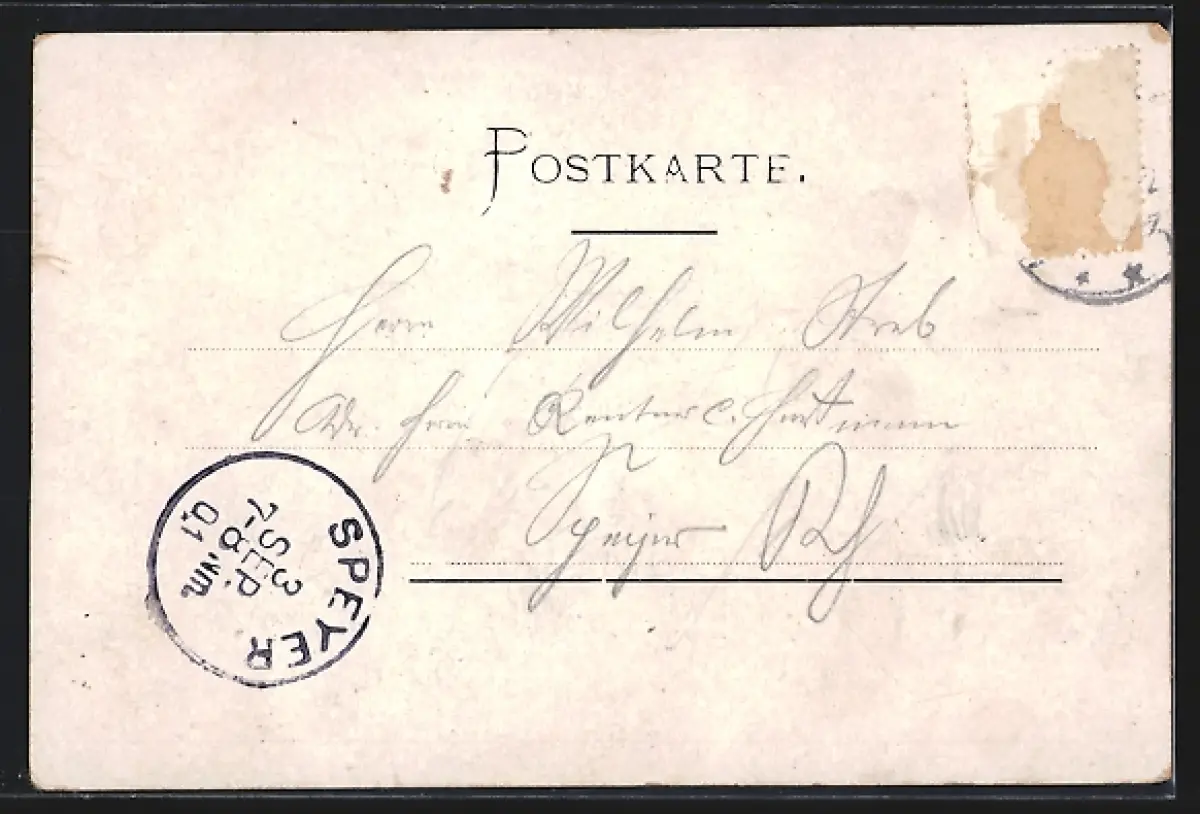 POSTKARTE.
Herrn Wilhelm Streb
Herrn Rentner C. Hartmann
Speyer Rh
SPEYER
3 SEP
7-8 Vm.
01